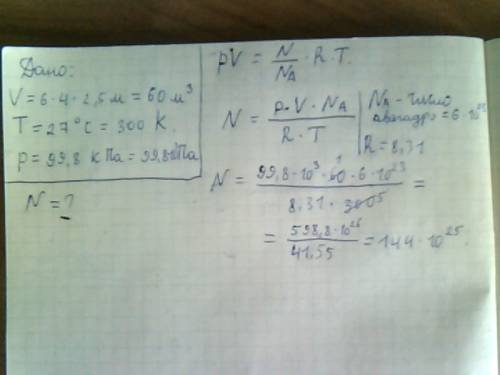 Дано:
V = 6 · 4 · 2,5 м = 60 м³
T = 27°C = 300 K.
p = 99,8 кПа = 99,8·10³Па
N = ?
pV = N/N_A · R · T.
N = p · V · N_A / R · T
N_A - число
авогадро = 6 · 10²³
R = 8,31
N = 99,8 · 10³ · 60 · 6 · 10²³ / 8,31 · 300 5 =
= 598,8 · 10²⁶ / 41,55 = 144 · 10²⁵.